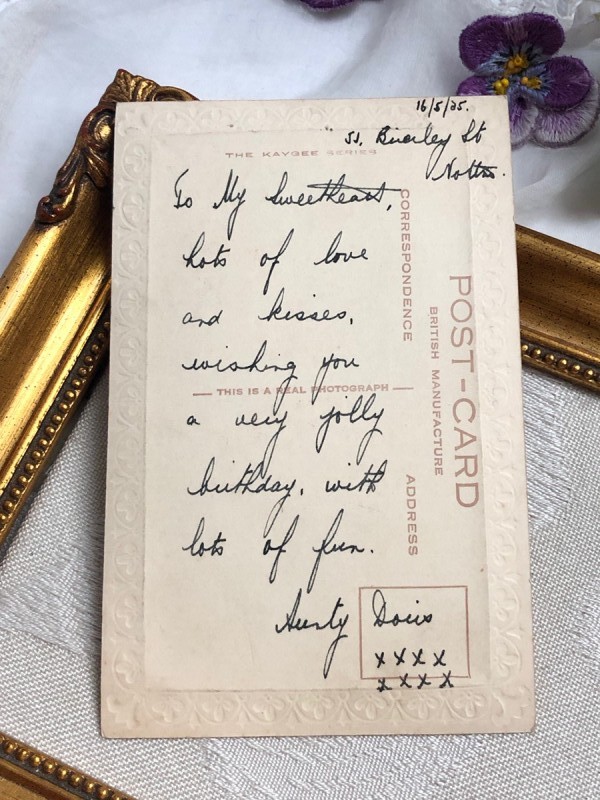 16/5/25.
53, Brierley St
Notts.
THE KAYGEE SERIES
To My Sweetheart,
Lots of love
and kisses,
wishing you
THIS IS A REAL PHOTOGRAPH
a very jolly
birthday, with
lots of fun.
Aunty Doris
xxxx
xxxx
CORRESPONDENCE
ADDRESS
BRITISH MANUFACTURE
POST-CARD